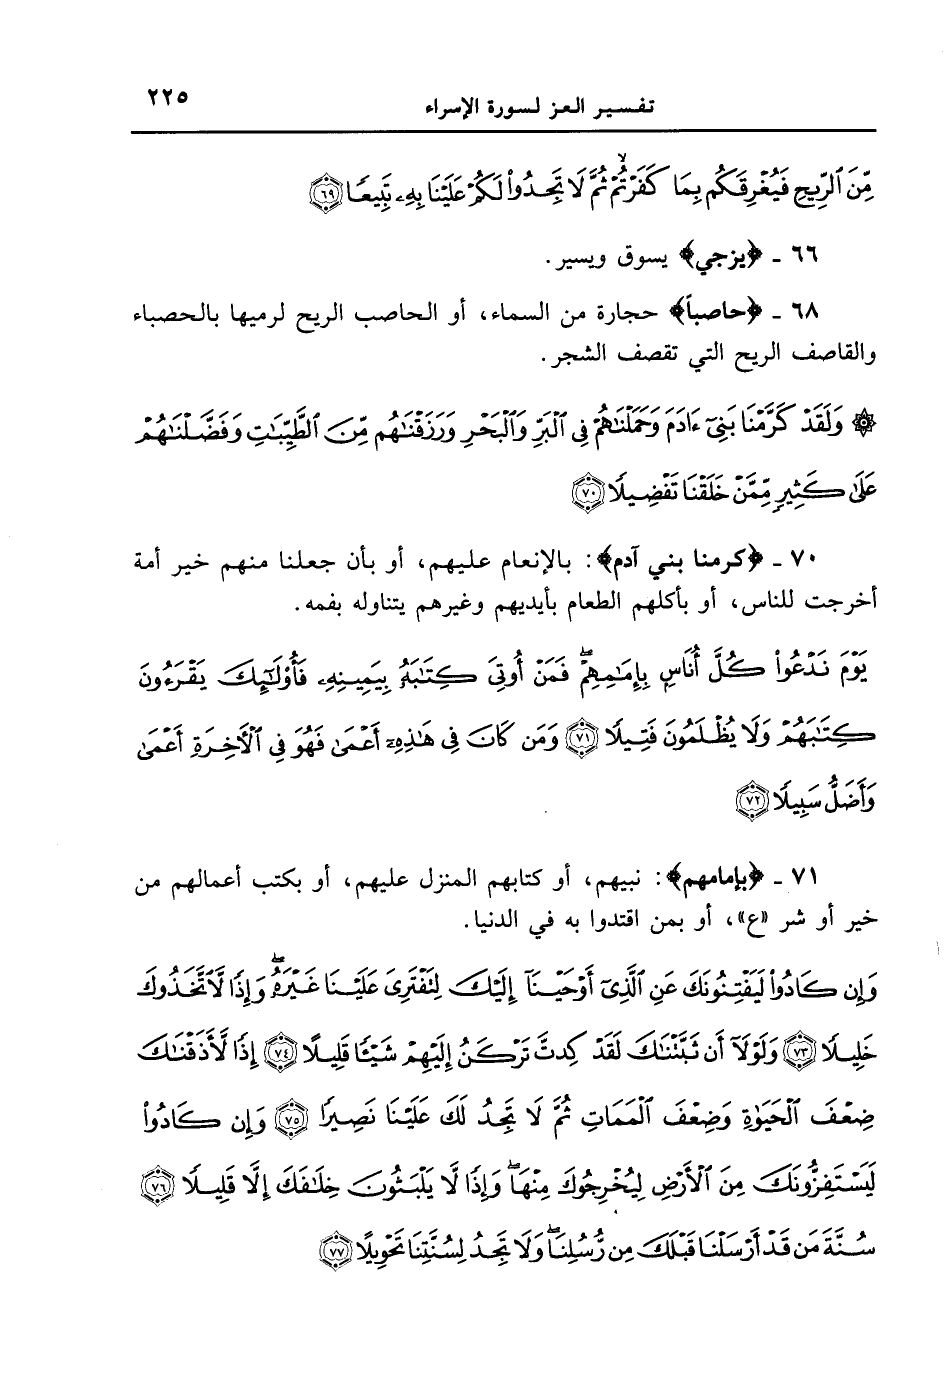 تفسير العز لسورة الإسراء ٢٢٥
مِّنَ ٱلرِّيحِ فَيُغْرِقَكُم بِمَا كَفَرْتُمْ ۙ ثُمَّ لَا تَجِدُوا۟ لَكُمْ عَلَيْنَا بِهِۦ تَبِيعًا ﴿٦٩﴾
٦٦ - ﴿يزجي﴾ يسوق ويسير.
٦٨ - ﴿حاصباً﴾ حجارة من السماء، أو الحاصب الريح لرميها بالحصباء
والقاصف الريح التي تقصف الشجر.
۞ وَلَقَدْ كَرَّمْنَا بَنِىٓ ءَادَمَ وَحَمَلْنَٰهُمْ فِى ٱلْبَرِّ وَٱلْبَحْرِ وَرَزَقْنَٰهُم مِّنَ ٱلطَّيِّبَٰتِ وَفَضَّلْنَٰهُمْ
عَلَىٰ كَثِيرٍ مِّمَّنْ خَلَقْنَا تَفْضِيلًا ﴿٧٠﴾
٧٠ - ﴿كرمنا بني آدم﴾: بالإنعام عليهم، أو بأن جعلنا منهم خير أمة
أخرجت للناس، أو بأكلهم الطعام بأيديهم وغيرهم يتناوله بفمه.
يَوْمَ نَدْعُوا۟ كُلَّ أُنَاسٍۭ بِإِمَٰمِهِمْ ۖ فَمَنْ أُوتِىَ كِتَٰبَهُۥ بِيَمِينِهِۦ فَأُو۟لَٰٓئِكَ يَقْرَءُونَ
كِتَٰبَهُمْ وَلَا يُظْلَمُونَ فَتِيلًا ﴿٧١﴾ وَمَن كَانَ فِى هَٰذِهِۦٓ أَعْمَىٰ فَهُوَ فِى ٱلْءَاخِرَةِ أَعْمَىٰ
وَأَضَلُّ سَبِيلًا ﴿٧٢﴾
٧١ - ﴿بإمامهم﴾: نبيهم، أو كتابهم المنزل عليهم، أو بكتب أعمالهم من
خير أو شر «ع»، أو بمن اقتدوا به في الدنيا.
وَإِن كَادُوا۟ لَيَفْتِنُونَكَ عَنِ ٱلَّذِىٓ أَوْحَيْنَآ إِلَيْكَ لِتَفْتَرِىَ عَلَيْنَا غَيْرَهُۥ ۖ وَإِذًا لَّٱتَّخَذُوكَ
خَلِيلًا ﴿٧٣﴾ وَلَوْلَآ أَن ثَبَّتْنَٰكَ لَقَدْ كِدتَّ تَرْكَنُ إِلَيْهِمْ شَيْـًٔا قَلِيلًا ﴿٧٤﴾ إِذًا لَّأَذَقْنَٰكَ
ضِعْفَ ٱلْحَيَوٰةِ وَضِعْفَ ٱلْمَمَاتِ ثُمَّ لَا تَجِدُ لَكَ عَلَيْنَا نَصِيرًا ﴿٧٥﴾ وَإِن كَادُوا۟
لَيَسْتَفِزُّونَكَ مِنَ ٱلْأَرْضِ لِيُخْرِجُوكَ مِنْهَا ۖ وَإِذًا لَّا يَلْبَثُونَ خِلَٰفَكَ إِلَّا قَلِيلًا ﴿٧٦﴾
سُنَّةَ مَن قَدْ أَرْسَلْنَا قَبْلَكَ مِن رُّسُلِنَا ۖ وَلَا تَجِدُ لِسُنَّتِنَا تَحْوِيلًا ﴿٧٧﴾